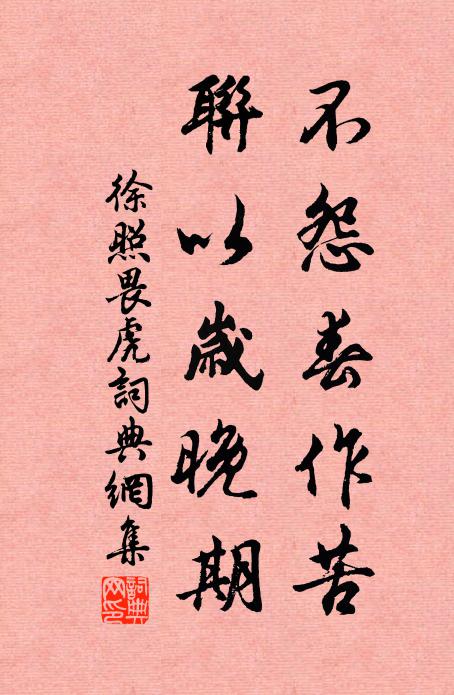 不怨春作苦
聯以歲晚期
徐照畏虎詞典網集
詞典網印